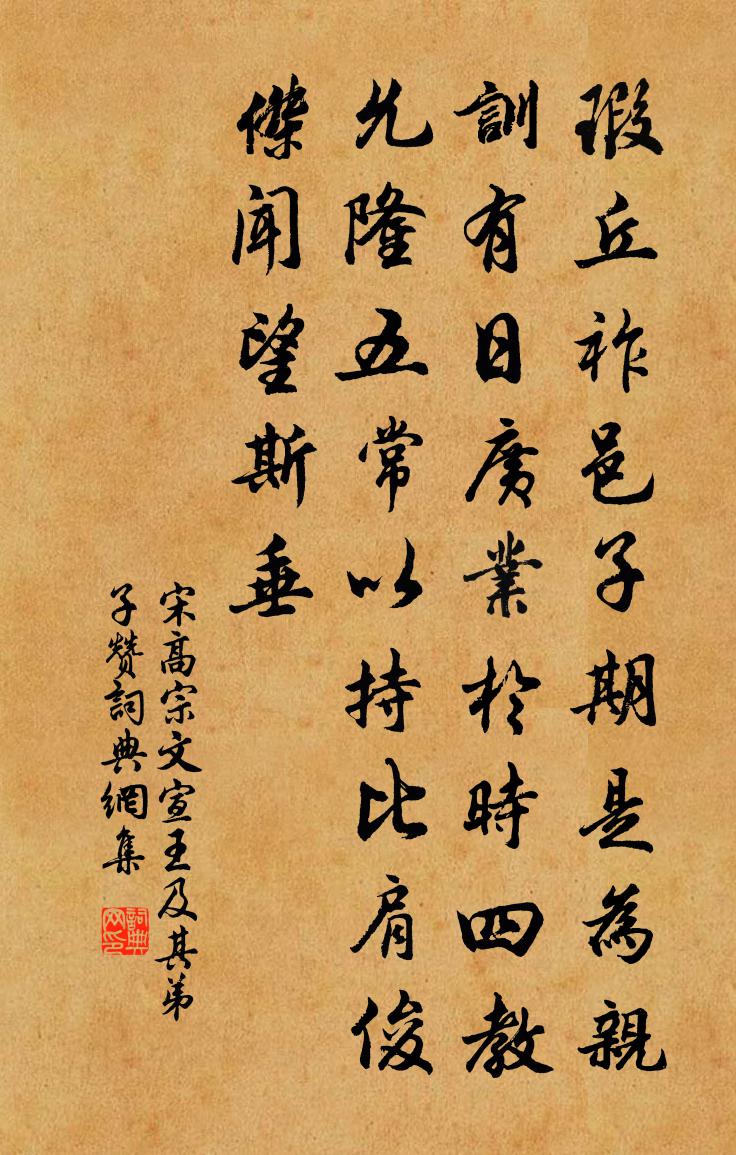 瑕丘祚邑子期是為親
訓有日廣業於時四教
允隆五常以持比肩俊
傑聞望斯垂
宋高宗文宣王及其弟
子贊詞典網集
詞典
网印